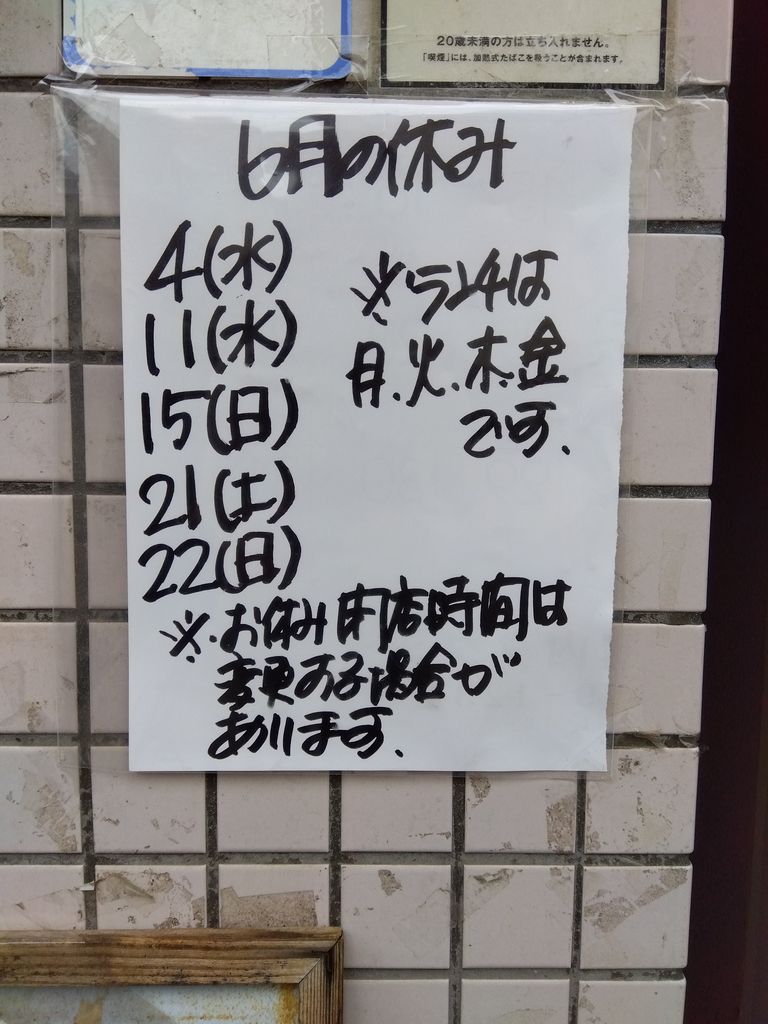 20歳未満の方は立ち入れません。
「喫煙」には、加熱式たばこを吸うことが含まれます。
6月の休み
4(水)
11(水)
15(日)
21(土)
22(日)
※ランチは
月.火.木.金
です.
※.お休み 閉店時間は
変更する場合が
あります.